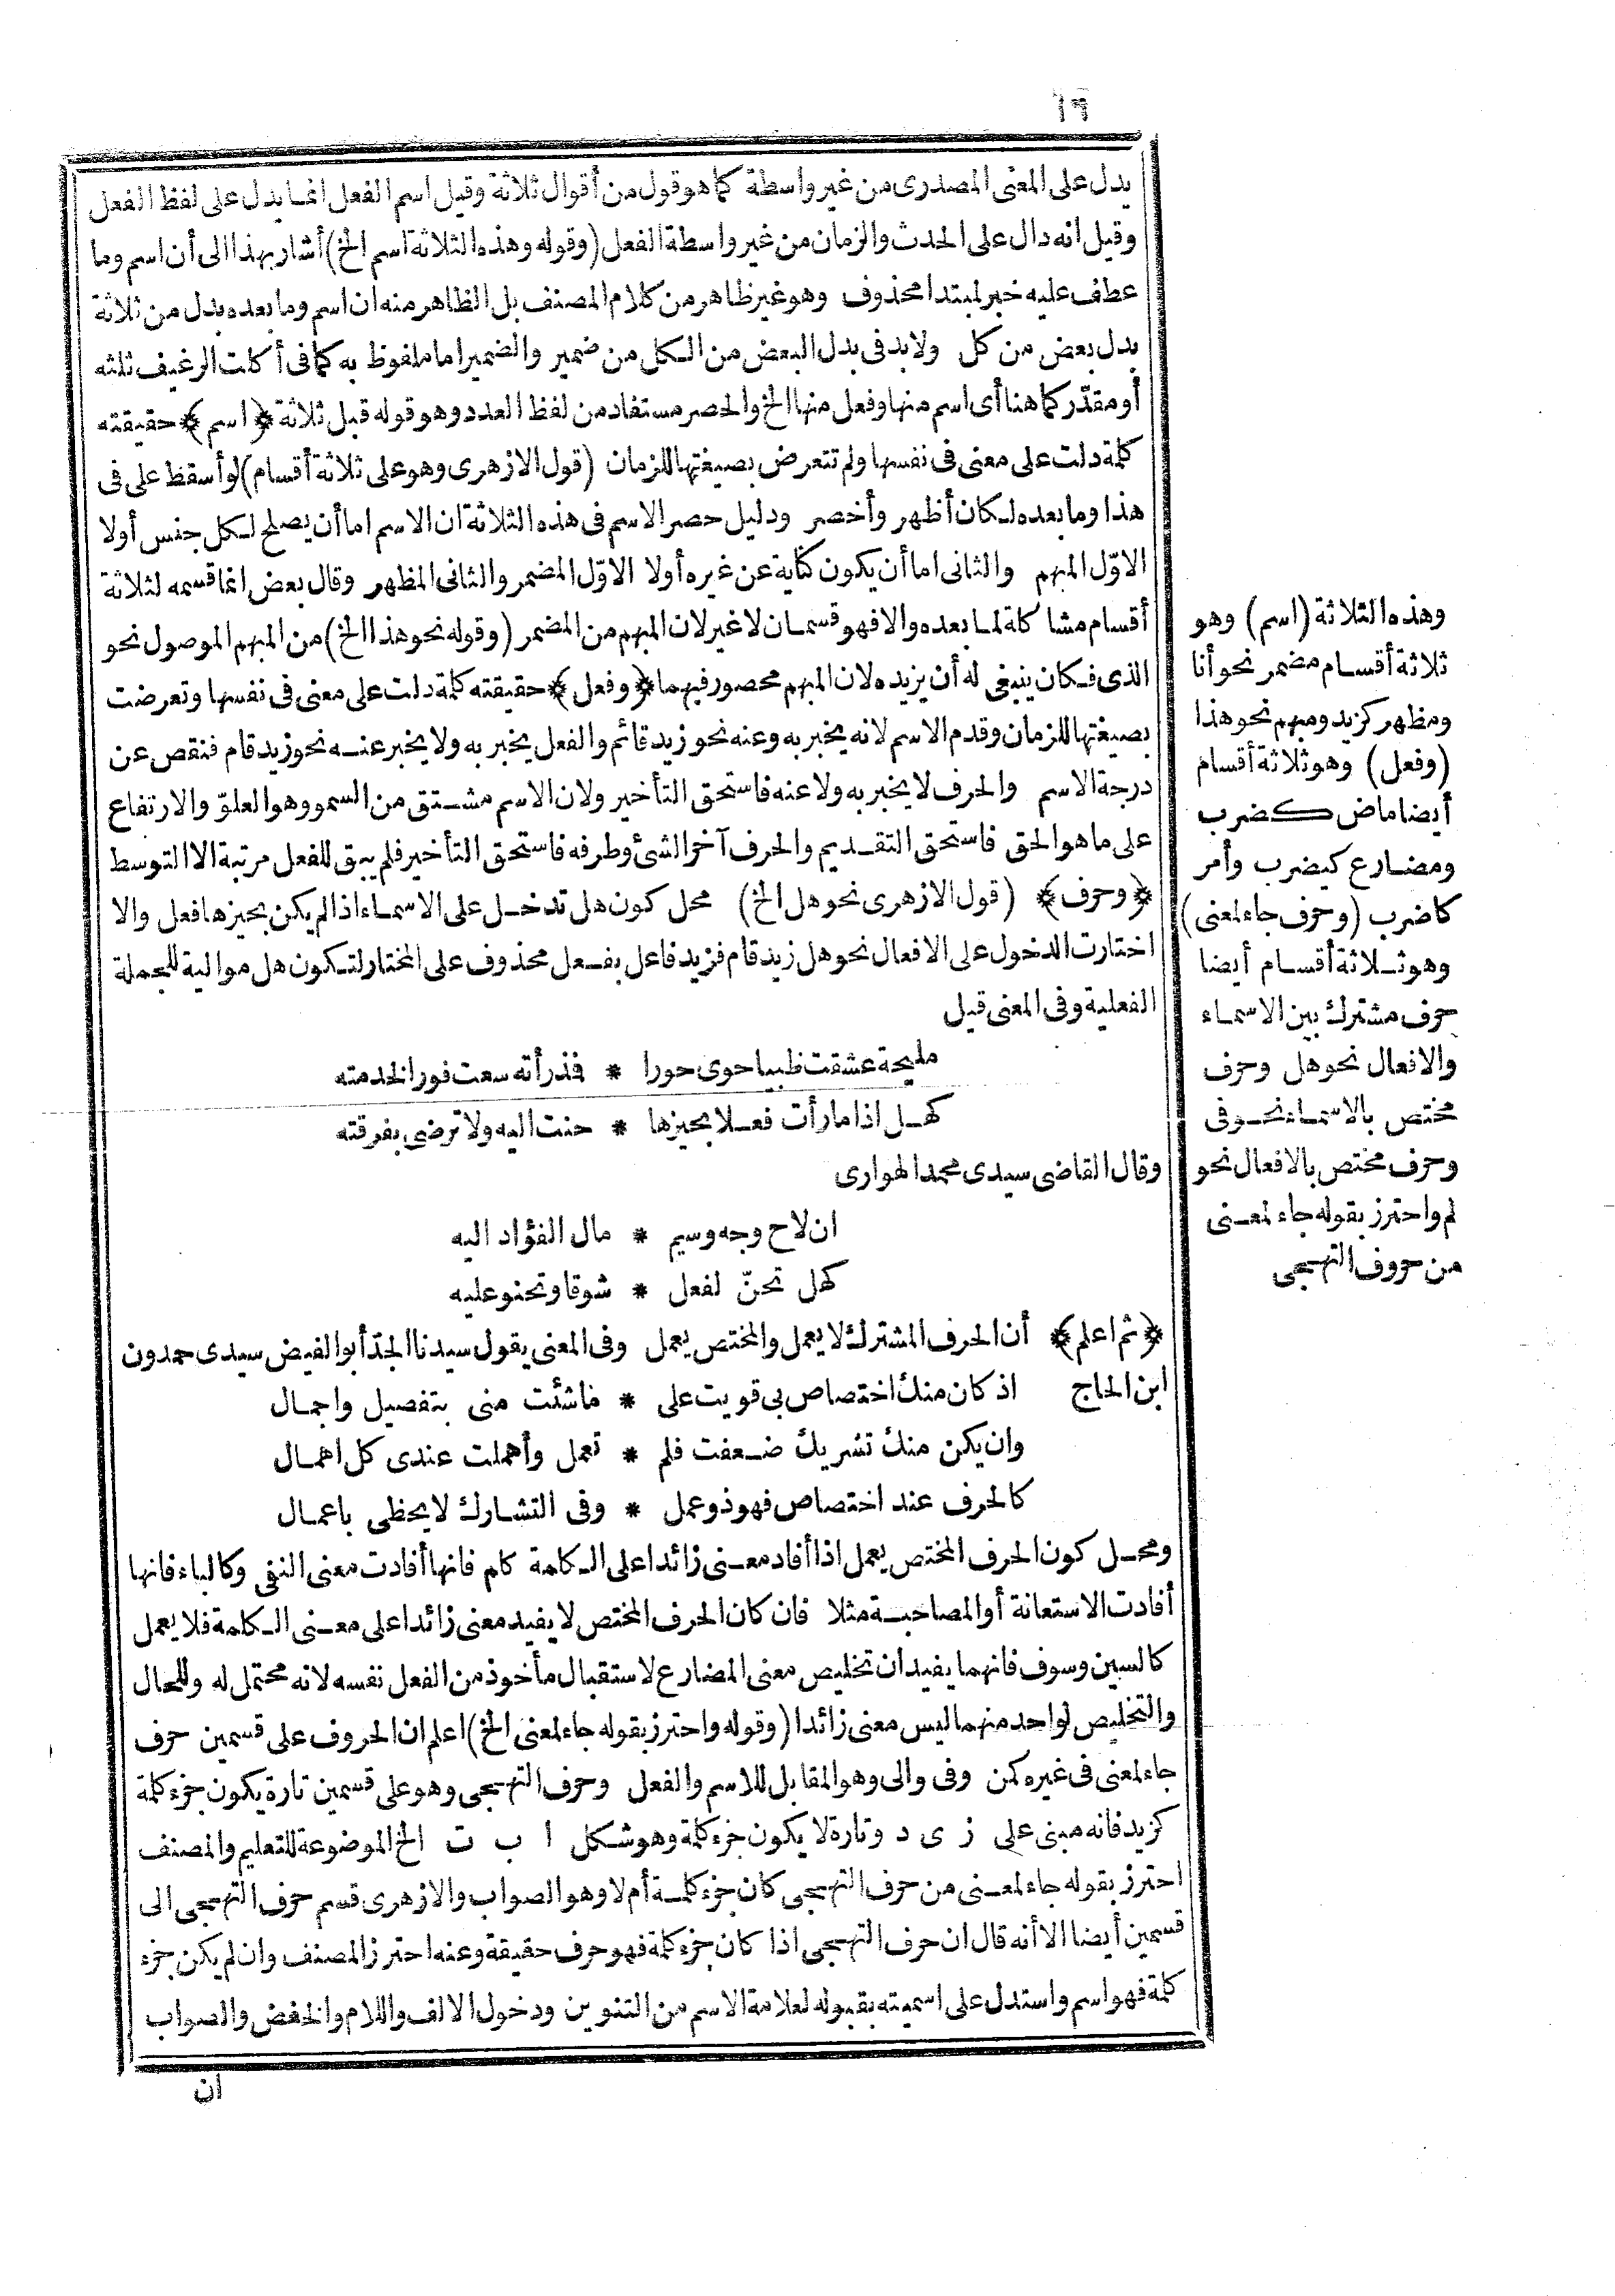 يدل على المعنى المصدرى من غير واسطة كما هو قول من أقوال ثلاثة وقيل اسم الفعل انما يدل على لفظ الفعل
وقيل انه دال على الحدث والزمان من غير واسطة الفعل (وقوله وهذه الثلاثة اسم الخ) أشار بهذا الى أن اسم وما
عطف عليه خبر لمبتدا محذوف وهو غير ظاهر من كلام المصنف بل الظاهر منه ان اسم وما بعده بدل من ثلاثة
بدل بعض من كل ولا بد فى بدل البعض من الكل من ضمير والضمير اما ملفوظ به كما فى أكلت الرغيف ثلثه
أو مقدّر كما هنا أى اسم منها وفعل منها الخ والحصر مستفاد من لفظ العدد وهو قوله قبل ثلاثة ﴿اسم﴾ حقيقته
كلمة دلت على معنى فى نفسها ولم تتعرض بصيغتها للزمان (قول الازهرى وهو على ثلاثة أقسام) لو أسقط على فى
هذا وما بعده لكان أظهر وأخصر ودليل حصر الاسم فى هذه الثلاثة ان الاسم اما أن يصلح لكل جنس أولا
الاوّل المبهم والثانى اما أن يكون كناية عن غيره أولا الاوّل المضمر والثانى المظهر وقال بعض انما قسمه لثلاثة
أقسام مشاكلة لما بعده والا فهو قسمان لا غير لان المبهم من المضمر (وقوله نحو هذا الخ) من المبهم الموصول نحو
الذى فكان ينبغى له أن يزيده لان المبهم محصور فيهما ﴿وفعل﴾ حقيقته كلمة دلت على معنى فى نفسها وتعرضت
بصيغتها للزمان وقدم الاسم لانه يخبر به وعنه نحو زيد قائم والفعل يخبر به ولا يخبر عنه نحو زيد قام فنقص عن
درجة الاسم والحرف لا يخبر به ولا عنه فاستحق التأخير ولان الاسم مشتق من السمو وهو العلوّ والارتفاع
على ما هو الحق فاستحق التقديم والحرف آخر الشئ وطرفه فاستحق التأخير فلم يبق للفعل مرتبة الا التوسط
﴿وحرف﴾ (قول الازهرى نحو هل الخ) محل كون هل تدخل على الاسماء اذا لم يكن بحيزها فعل والا
اختارت الدخول على الافعال نحو هل زيد قام فزيد فاعل بفعل محذوف على المختار لتكون هل موالية للجملة
الفعلية وفى المعنى قيل
مليحة عشقت ظبيا حوى حورا * فمذ رأته سعت فورا لخدمته
كهل اذا ما رأت فعلا بحيزها * حنت اليه ولا ترضى بفرقته
وقال القاضى سيدى محمد الهوارى
ان لاح وجه وسيم * مال الفؤاد اليه
كهل تحنّ لفعل * شوقا وتحنو عليه
﴿ثم اعلم﴾ أن الحرف المشترك لا يعمل والمختص يعمل وفى المعنى يقول سيدنا الجدّ أبو الفيض سيدى حمدون
ابن الحاج اذ كان منك اختصاص بى قويت على * ما شئت منى بتفصيل واجمال
وان يكن منك تشريك ضعفت فلم * تعمل وأهملت عندى كل اهمال
كالحرف عند اختصاص فهو ذو عمل * وفى التشارك لا يحظى باعمال
ومحل كون الحرف المختص يعمل اذا أفاد معنى زائدا على الكلمة كلم فانها أفادت معنى النفى وكالباء فانها
أفادت الاستعانة أو المصاحبة مثلا فان كان الحرف المختص لا يفيد معنى زائدا على معنى الكلمة فلا يعمل
كالسين وسوف فانهما يفيدان تخليص معنى المضارع لاستقبال مأخوذ من الفعل نفسه لانه محتمل له وللحال
والتخليص لواحد منهما ليس معنى زائدا (وقوله واحترز بقوله جاء لمعنى الخ) اعلم ان الحروف على قسمين حرف
جاء لمعنى فى غيره كمن وفى والى وهو المقابل للاسم والفعل وحرف التهجى وهو على قسمين تارة يكون جزء كلمة
كزيد فانه مبنى على ز ى د وتارة لا يكون جزء كلمة وهو شكل ا ب ت الخ الموضوعة للتعليم والمصنف
احترز بقوله جاء لمعنى من حرف التهجى كان جزء كلمة أم لا وهو الصواب والازهرى قسم حرف التهجى الى
قسمين أيضا الا أنه قال ان حرف التهجى اذا كان جزء كلمة فهو حرف حقيقة وعنه احترز المصنف وان لم يكن جزء
كلمة فهو اسم واستدل على اسميته بقبوله لعلامة الاسم من التنوين ودخول الالف واللام والخفض والصواب
ان
وهذه الثلاثة (اسم) وهو
ثلاثة أقسام مضمر نحو أنا
ومظهر كزيد ومبهم نحو هذا
(وفعل) وهو ثلاثة أقسام
أيضا ماض كضرب
ومضارع كيضرب وأمر
كاضرب (وحرف جاء لمعنى)
وهو ثلاثة أقسام أيضا
حرف مشترك بين الاسماء
والافعال نحو هل وحرف
مختص بالاسماء نحو فى
وحرف مختص بالافعال نحو
لم واحترز بقوله جاء لمعنى
من حروف التهجى